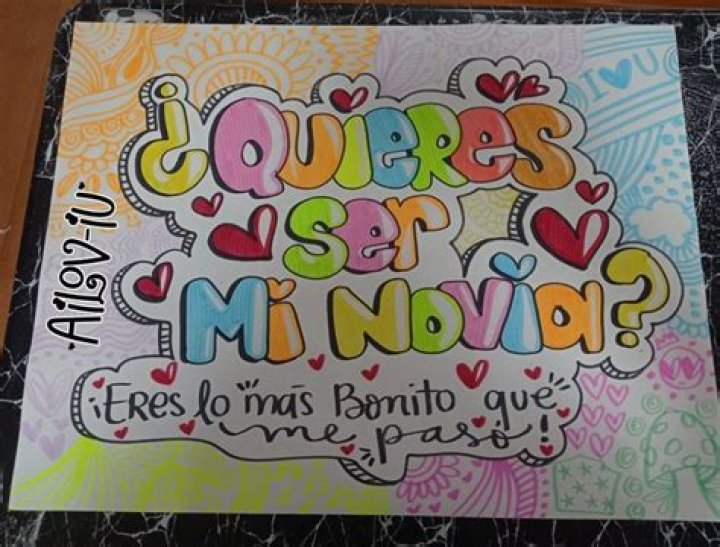 ¿Quieres
ser
Mi Novia?
¡Eres lo más Bonito que
me pasó!
I U
AiLOV-iU